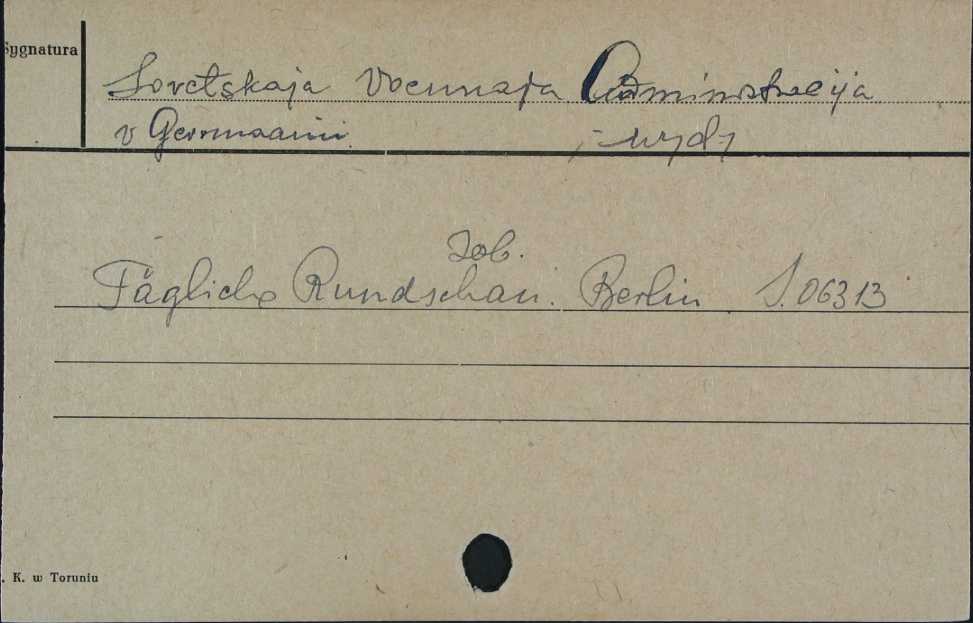 Sygnatura
Sovetskaja Voennaja Administracija
v Germanii ; wyd.
Zob.
Tägliche Rundschau. Berlin S.06313
. K. w Toruniu